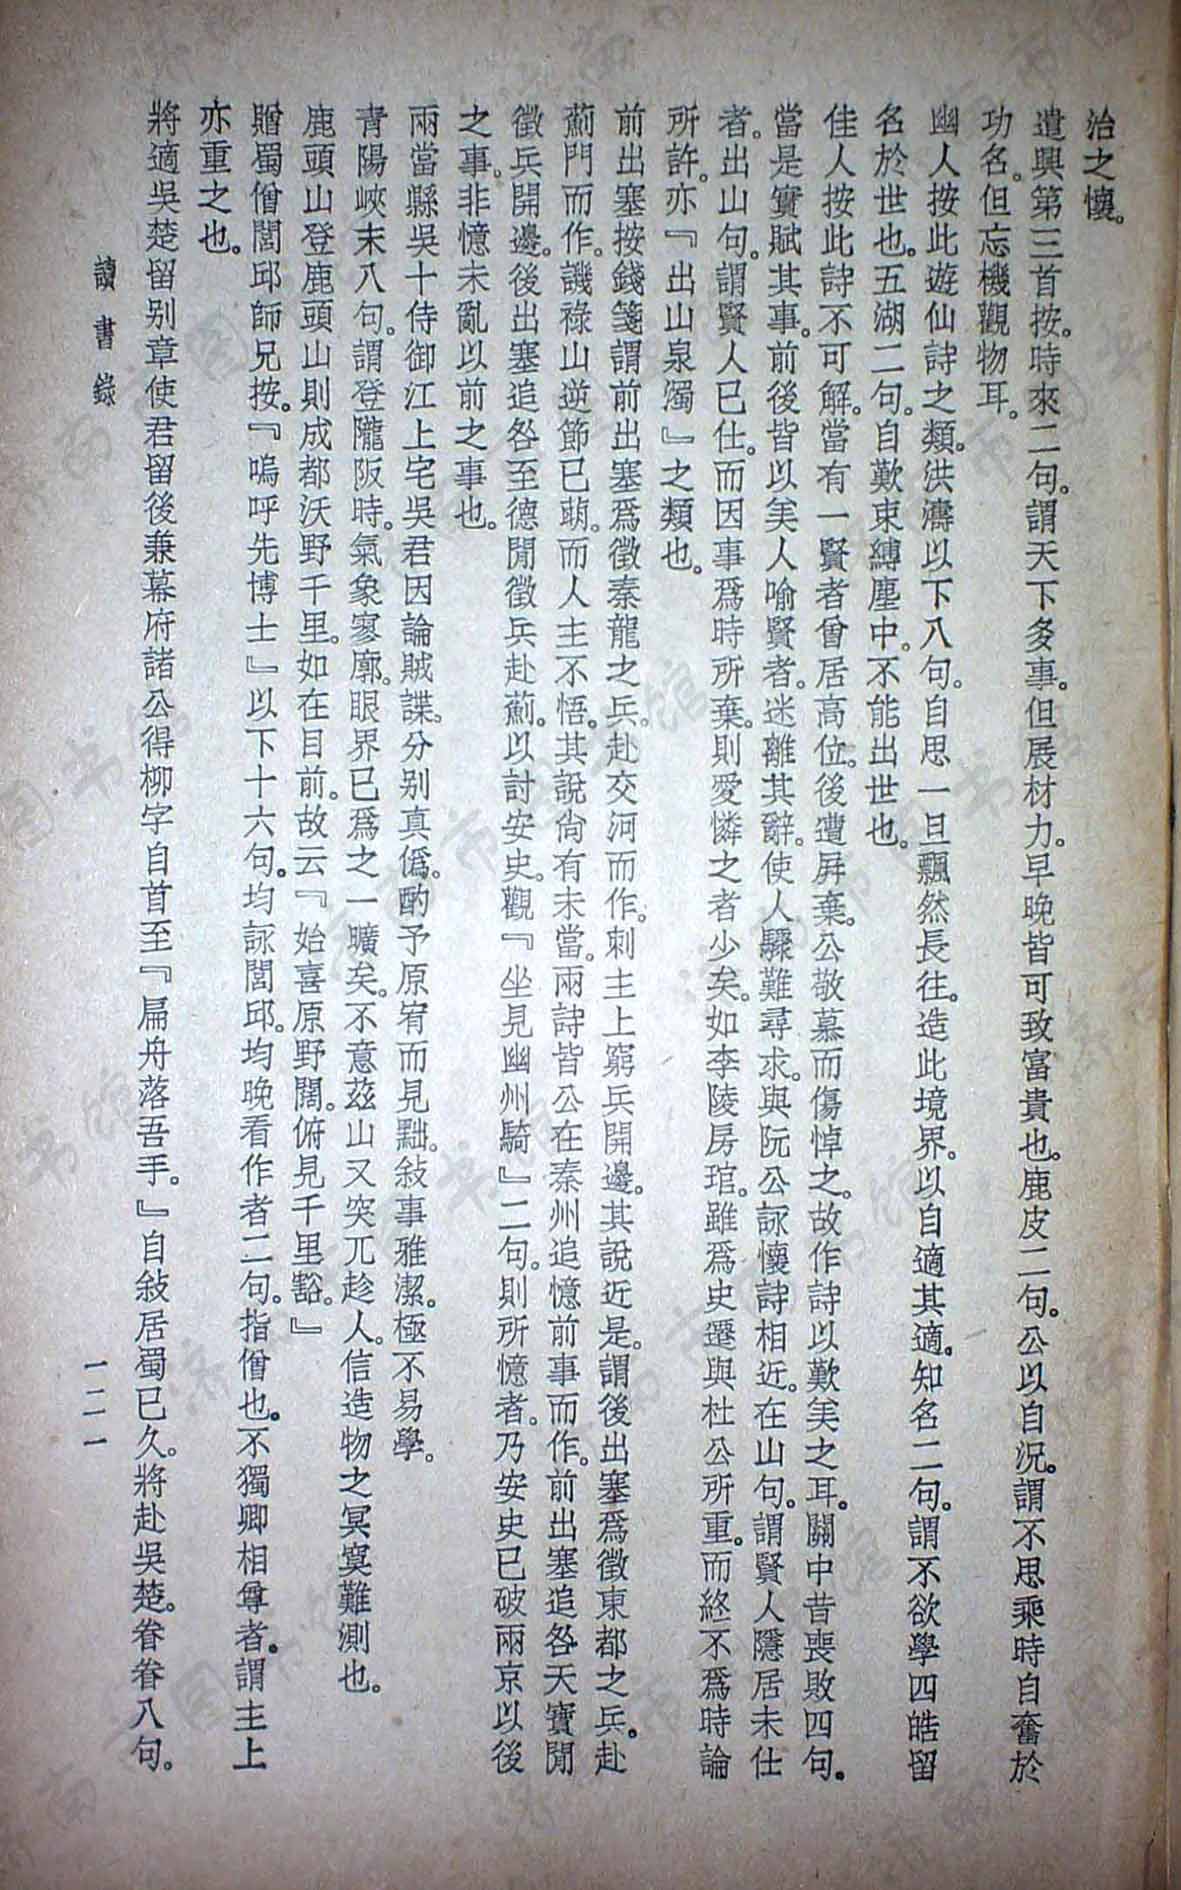 治之懷。
遣興第三首按。時來二句。謂天下多事。但展材力。早晚皆可致富貴也。鹿皮二句。公以自況。謂不思乘時自奮於
功名。但忘機觀物耳。
幽人按此遊仙詩之類。洪濤以下八句。自思一旦飄然長往。造此境界。以自適其適。知名二句。謂不欲學四皓留
名於世也。五湖二句。自歎束縛塵中。不能出世也。
佳人按此詩不可解。當有一賢者曾居高位。後遭屏棄。公敬慕而傷悼之。故作詩以歎美之耳。關中昔喪敗四句。
當是實賦其事。前後皆以美人喻賢者。迷離其辭。使人驟難尋求。與阮公詠懷詩相近。在山句。謂賢人隱居未仕
者。出山句。謂賢人已仕。而因事爲時所棄。則愛憐之者少矣。如李陵房琯。雖爲史遷與杜公所重。而終不爲時論
所許。亦『出山泉濁』之類也。
前出塞按錢箋謂前出塞爲徵秦隴之兵。赴交河而作。刺主上窮兵開邊。其說近是。謂後出塞爲徵東都之兵。赴
薊門而作。譏祿山逆節已萌。而人主不悟。其說尙有未當。兩詩皆公在秦州追憶前事而作。前出塞追咎天寶閒
徵兵開邊。後出塞追咎至德閒徵兵赴薊。以討安史。觀『坐見幽州騎』二句。則所憶者。乃安史已破兩京以後
之事。非憶未亂以前之事也。
兩當縣吳十侍御江上宅吳君因論賊諜。分別真僞。酌予原宥而見黜。敍事雅潔。極不易學。
青陽峽末八句。謂登隴阪時。氣象寥廓。眼界已爲之一曠矣。不意茲山又突兀趁人。信造物之冥寞難測也。
鹿頭山登鹿頭山則成都沃野千里。如在目前。故云『始喜原野闊。俯見千里豁。』
贈蜀僧閭邱師兄按。『嗚呼先博士』以下十六句。均詠閭邱。均晚看作者二句。指僧也。不獨卿相尊者。謂主上
亦重之也。
將適吳楚留别章使君留後兼幕府諸公得柳字自首至『扁舟落吾手。』自敍居蜀已久。將赴吳楚。眷眷八句。
讀書錄
一二一